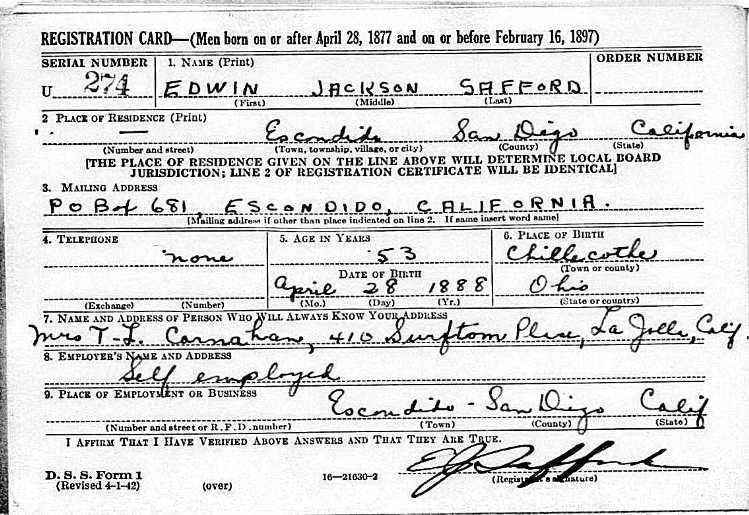 REGISTRATION CARD—(Men born on or after April 28, 1877 and on or before February 16, 1897)
SERIAL NUMBER 1. NAME (Print) ORDER NUMBER
U 274 EDWIN JACKSON SAFFORD
(First) (Middle) (Last)
2 PLACE OF RESIDENCE (Print)
— Escondido San Diego California
(Number and street) (Town, township, village, or city) (County) (State)
[THE PLACE OF RESIDENCE GIVEN ON THE LINE ABOVE WILL DETERMINE LOCAL BOARD
JURISDICTION; LINE 2 OF REGISTRATION CERTIFICATE WILL BE IDENTICAL]
3. MAILING ADDRESS
P O Box 681, ESCONDIDO, CALIFORNIA.
[Mailing address if other than place indicated on line 2. If same insert word same]
4. TELEPHONE 5. AGE IN YEARS 6. PLACE OF BIRTH
none 53 Chillecothe
DATE OF BIRTH (Town or county)
April 28 1888 Ohio
(Exchange) (Number) (Mo.) (Day) (Yr.) (State or country)
7. NAME AND ADDRESS OF PERSON WHO WILL ALWAYS KNOW YOUR ADDRESS
Mrs T-L. Carnahan, 410 Place, La Jolla, Calif.
8. EMPLOYER'S NAME AND ADDRESS
Self employed
9. PLACE OF EMPLOYMENT OR BUSINESS
Escondido - San Diego Calif
(Number and street or R. F. D. number) (Town) (County) (State)
I AFFIRM THAT I HAVE VERIFIED ABOVE ANSWERS AND THAT THEY ARE TRUE.
E J Safford
D. S. S. Form 1
(Revised 4-1-42) (over) 16—21630-2 (Registrant's signature)